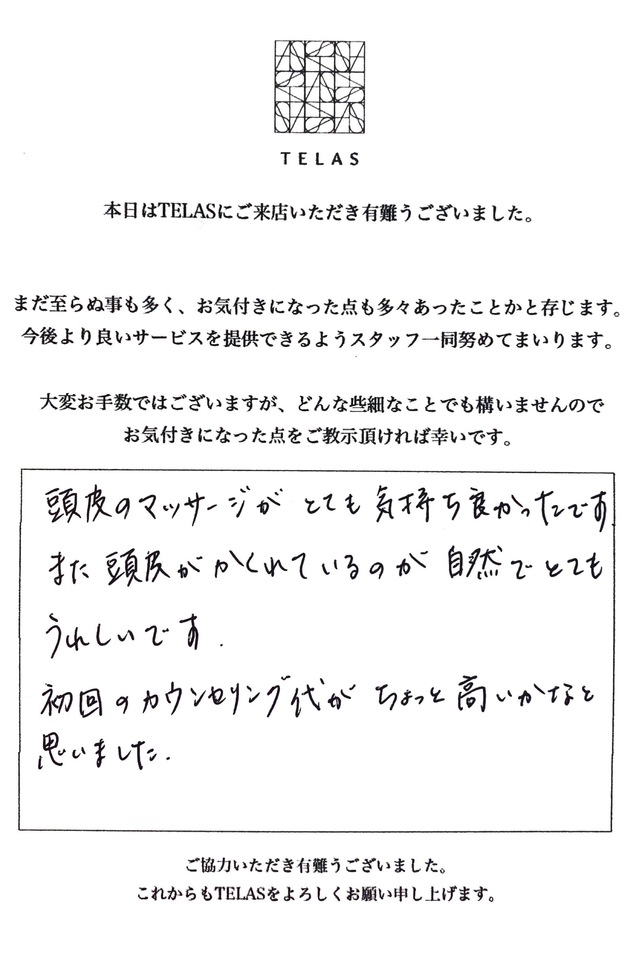 TELAS
本日はTELASにご来店いただき有難うございました。
まだ至らぬ事も多く、お気付きになった点も多々あったことかと存じます。
今後より良いサービスを提供できるようスタッフ一同努めてまいります。
大変お手数ではございますが、どんな些細なことでも構いませんので
お気付きになった点をご教示頂ければ幸いです。
頭皮のマッサージが とても 気持ち良かったです
また 頭皮が かくれているのが 自然で とても
うれしいです.
初回のカウンセリング代が ちょっと 高いかなと
思いました.
ご協力いただき有難うございました。
これからもTELASをよろしくお願い申し上げます。